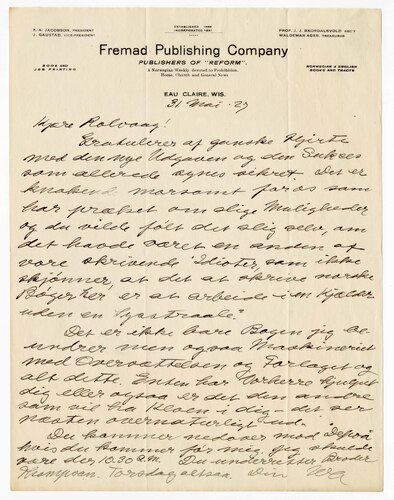 ESTABLISHED 1886
INCORPORATED 1891
K. A. JACOBSON, PRESIDENT
J. GAUSTAD, VICE-PRESIDENT
PROF. J. J. SKORDALSVOLD, SEC'Y
WALDEMAR AGER, TREASURER
Fremad Publishing Company
PUBLISHERS OF "REFORM".
BOOK AND
JOB PRINTING
A Norwegian Weekly devoted to Prohibition,
Home, Church and General News
NORWEGIAN & ENGLISH
BOOKS AND TRACTS
EAU CLAIRE, WIS.
31 Mai - 27
Kjære Rolvaag!
Gratulerer af ganske Hjerte
med den nye Udgaven og den Sukses
som allerede synes sikret. Det er
knakende morsomt for os som
har præket om slige Muligheder
og du vilde følt det slig selv, om
det havde været en anden af
vore skrivende "Idioter, som ikke
skjønner, at det at skrive norske
Bøger her er at arbeide i en Kjælder
uden en Lysstraale."
Det er ikke bare Bogen jeg be-
undrer men ogsaa Maskineriet
med Oversættelsen og Forlaget og
alt dette. Enten har Vorherre hjulpet
dig eller ogsaa er det den andre
som vil ha Kloen i dig - det ser
næsten overnaturligt ud.
Du kommer nedover med
hvis du kommer før mig, jeg skulde
være der 10.30 P.M. Du underretter Broder
Thompson. Torsdag altsaa. Din